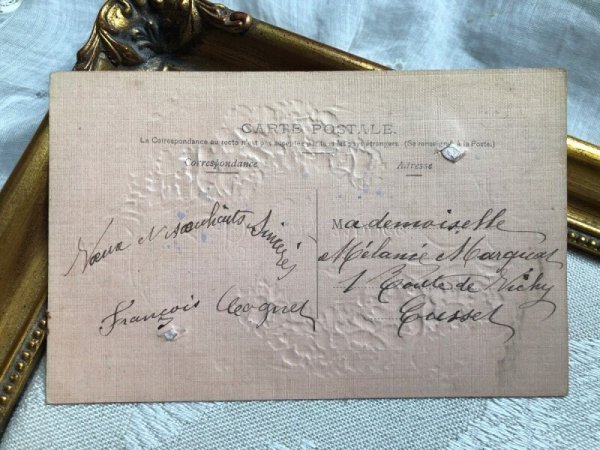 CARTE POSTALE.
La Correspondance au recto n'est pas acceptée par tous les pays étrangers. (Se renseigner à la Poste.)
Correspondance
Adresse
Vœux et souhaits Sincères
François Coquet
Mademoiselle
Mélanie
1 Route de Vichy
Cusset